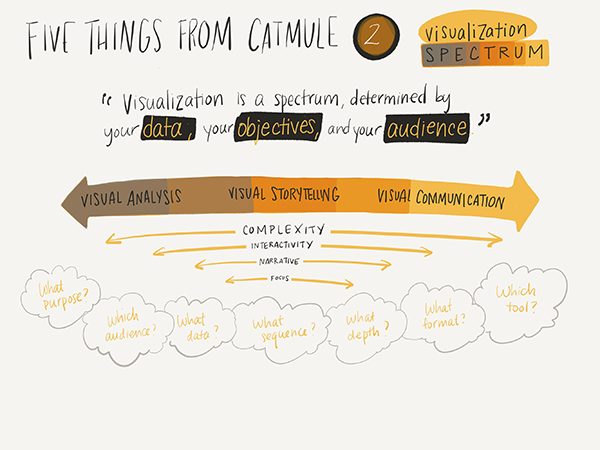 FIVE THINGS FROM CATMULE 2
visualization
SPECTRUM
"Visualization is a spectrum, determined by
your data, your objectives, and your audience."
VISUAL ANALYSIS VISUAL STORYTELLING VISUAL COMMUNICATION
COMPLEXITY
INTERACTIVITY
NARRATIVE
FOCUS
What
purpose?
Which
audience?
What
data?
What
sequence?
What
depth?
What
format?
Which
tool?